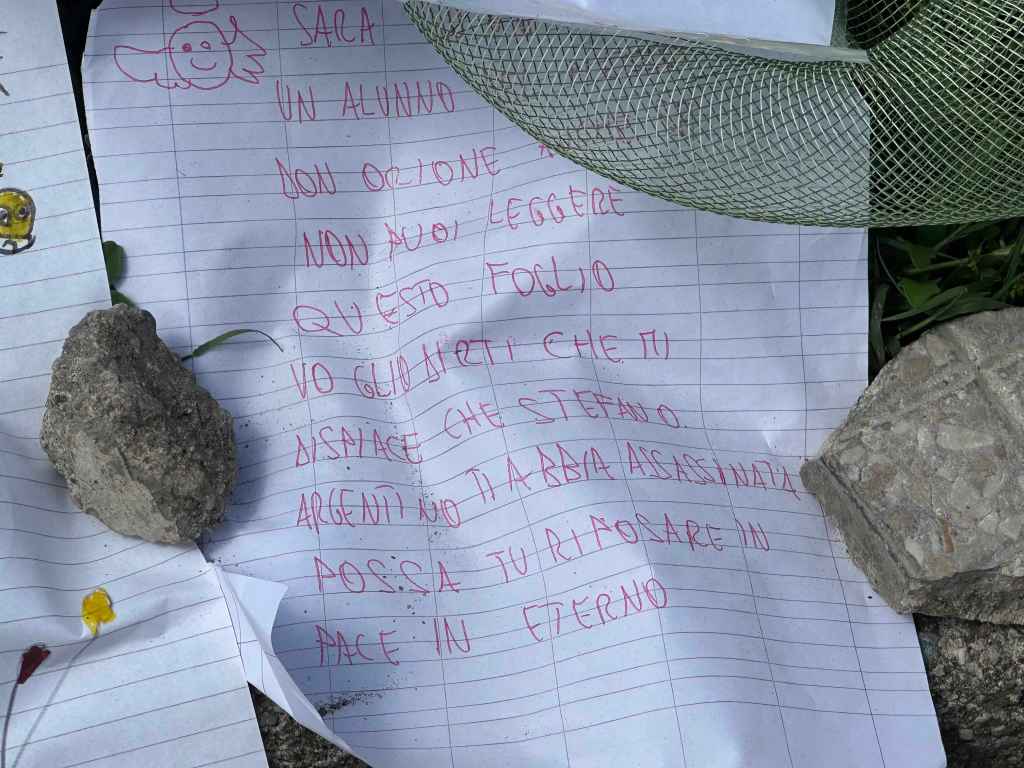 SARA
UN ALUNNO
DON ORIONE
NON PUOI LEGGERE
QUESTO FOGLIO
VOGLIO DIRTI CHE MI
DISPIACE CHE STEFANO
ARGENTINO TI ABBIA ASSASSINATA
POSSA TU RIPOSARE IN
PACE IN ETERNO